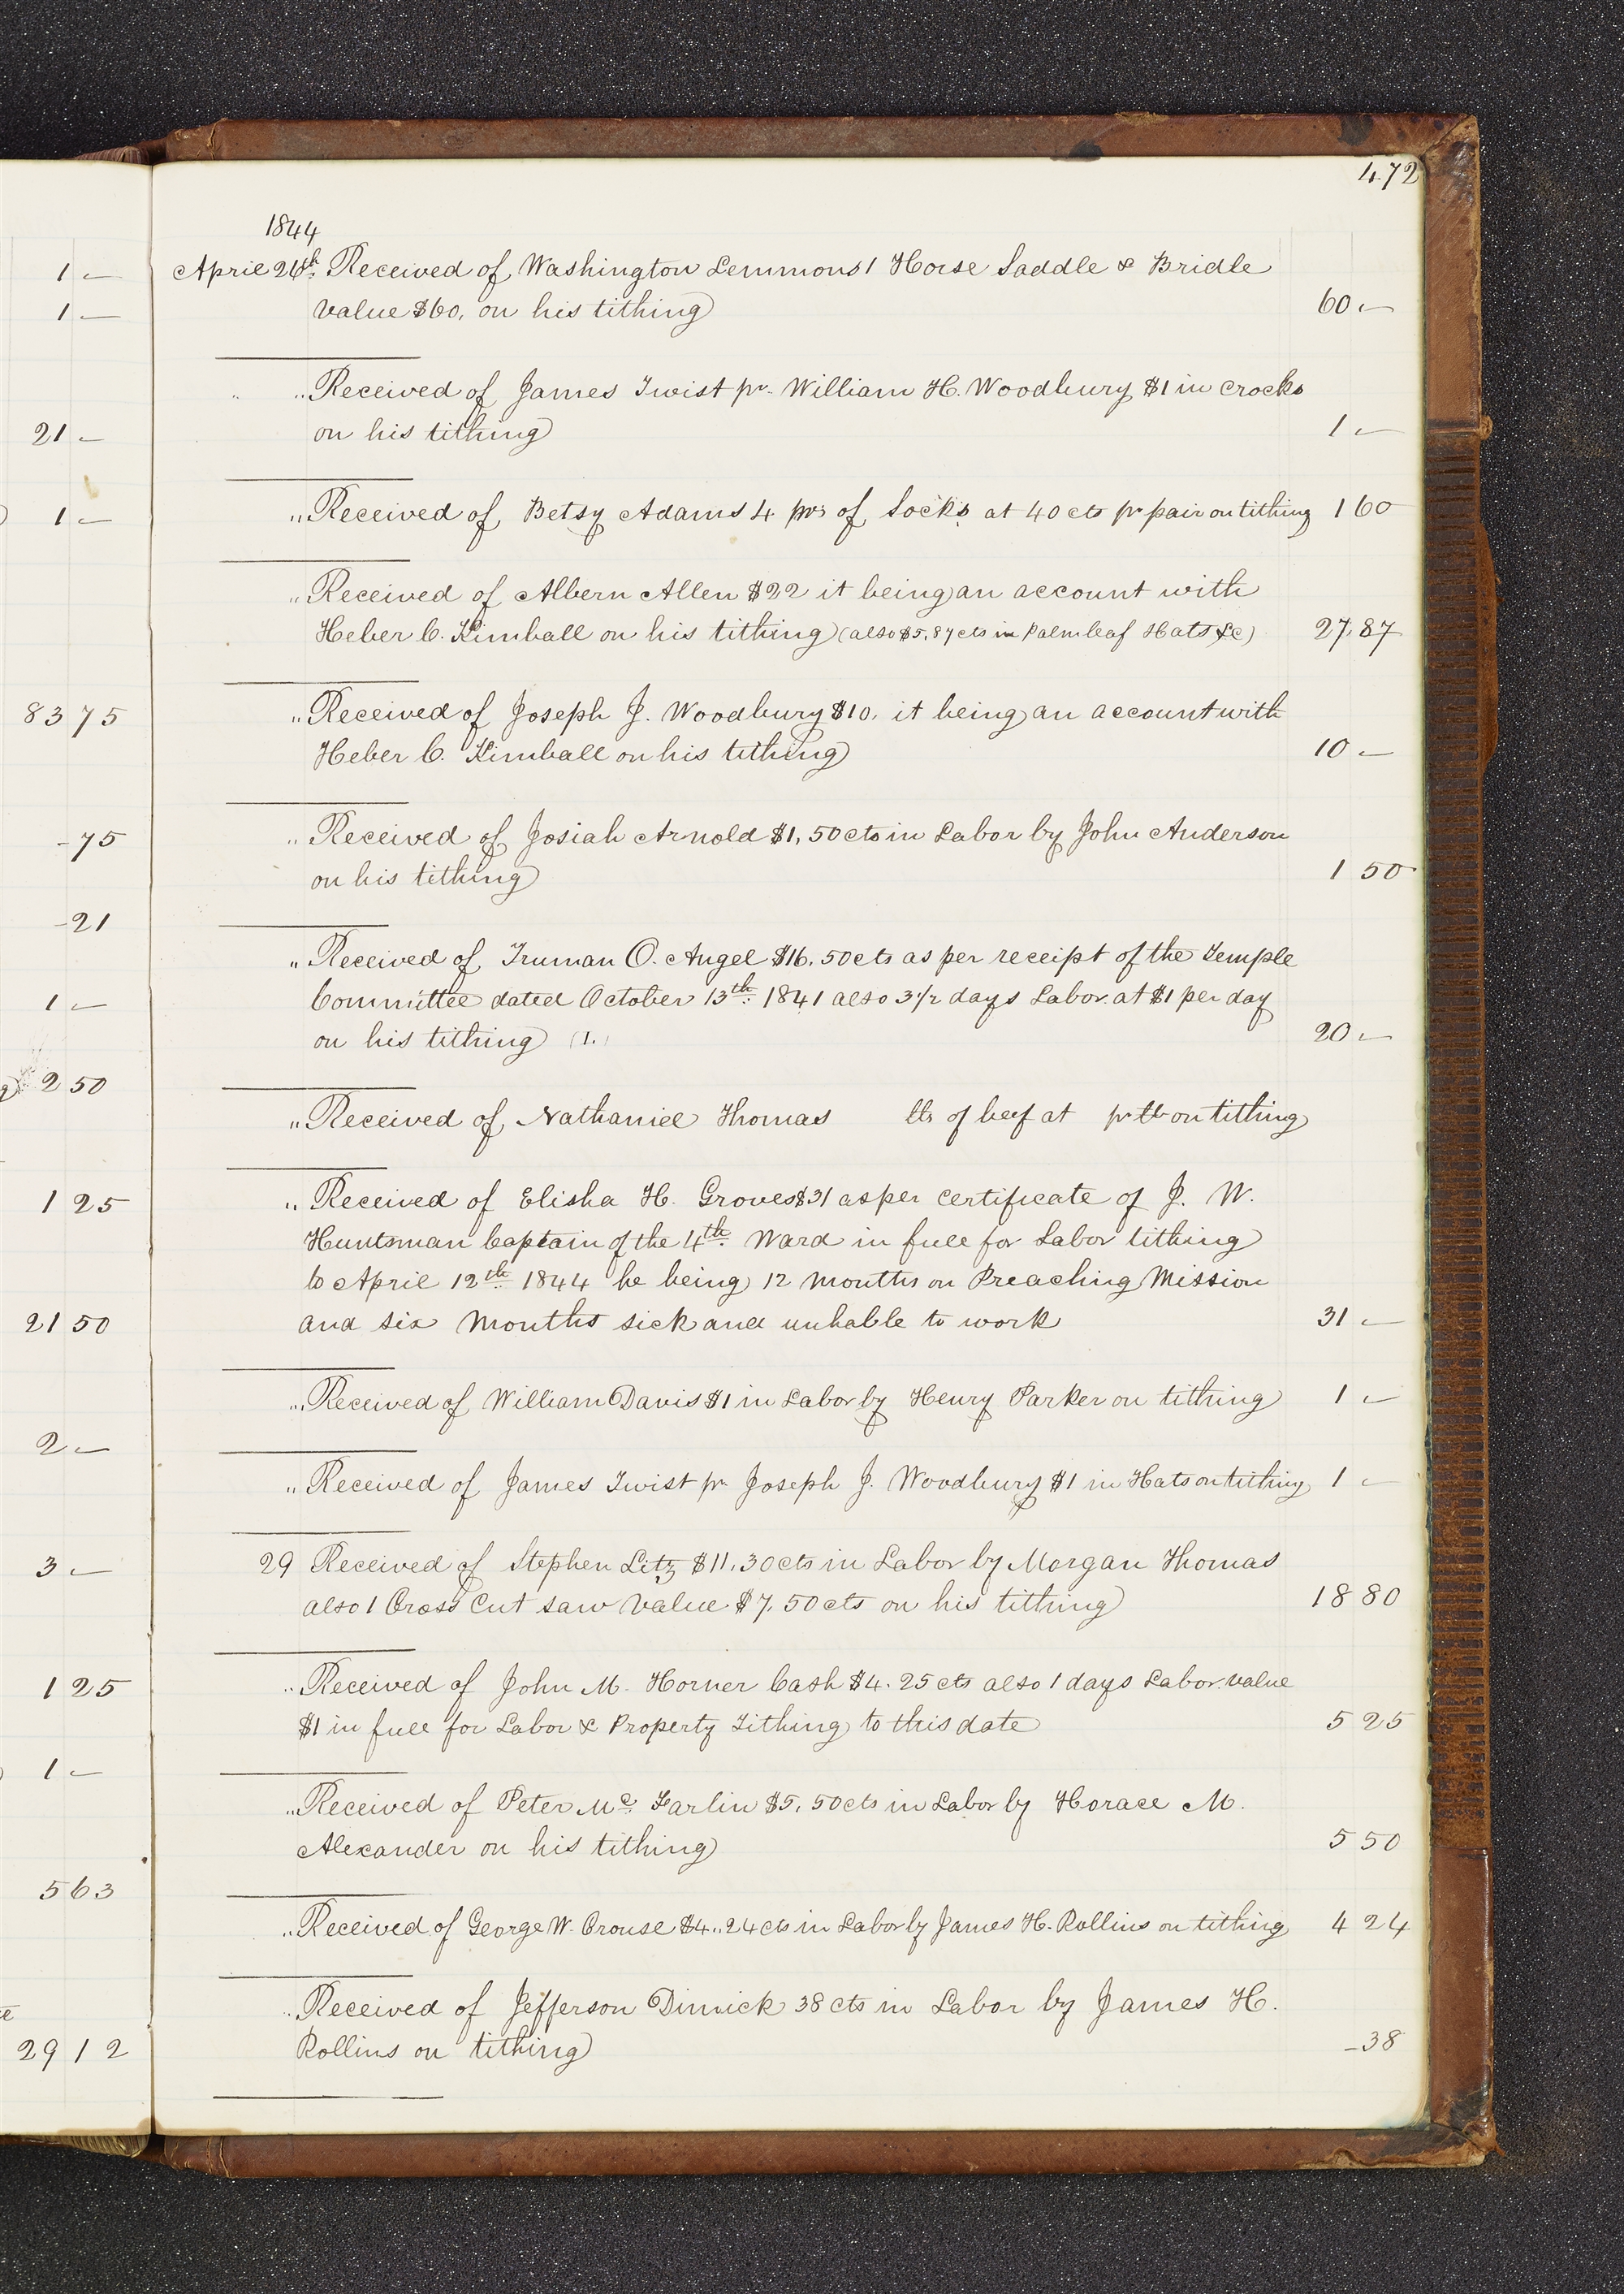 472
1844
April 26th Received of Washington Lemmons 1 Horse Saddle & Bridle
value $60, on his tithing 60 —
" " Received of James Twist pr. William H. Woodbury $1 in crocks
on his tithing 1 —
" Received of Betsy Adams 4 prs of Socks at 40 cts pr pair on tithing 1 60
" Received of Albern Allen $22 it being an account with
Heber C. Kimball on his tithing (also $5,87 cts in Palm leaf Hats &c) 27,87
" Received of Joseph J. Woodbury $10, it being an account with
Heber C. Kimball on his tithing 10 —
" Received of Josiah Arnold $1,50 cts in Labor by John Anderson
on his tithing 1 50
" Received of Truman O. Angel $16.50 cts as per receipt of the Temple
Committee dated October 13th 1841 also 3 1/2 days Labor at $1 per day
on his tithing (1.) 20 —
" Received of Nathaniel Thomas lbs of beef at pr lb on tithing
" Received of Elisha H. Groves $31 as per certificate of J. W.
Huntsman Captain of the 4th Ward in full for Labor tithing
to April 12th 1844 he being 12 months on Preaching Mission
and six Months sick and unhable to work 31 —
" Received of William Davis $1 in Labor by Henry Parker on tithing 1 —
" Received of James Twist pr. Joseph J. Woodbury $1 in Hats on tithing 1 —
29 Received of Stephen Litz $11.30 cts in Labor by Morgan Thomas
also 1 Cross Cut saw value $7.50 cts on his tithing 18 80
" Received of John M. Horner Cash $4.25 cts also 1 days Labor value
$1 in full for Labor & Property Tithing to this date 5 25
" Received of Peter Mc. Farlin $5,50 cts in Labor by Horace M.
Alexander on his tithing 5 50
" Received of George W. Crouse $4..24 cts in Labor by James H. Rollins on tithing 4 24
" Received of Jefferson Dimick 38 cts in Labor by James H.
Rollins on tithing -38
1 —
1 —
21 —
1 —
83 75
-75
-21
1 —
2 50
1 25
21 50
2 —
3 —
1 25
1 —
5 63
29 12